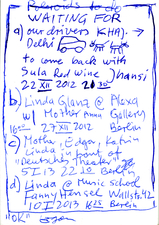 WAITING FOR
a) our drivers KHAJ-
Delhi
to come back with
Sula Red wine Jhansi
22 XII 2012
b) Linda Glanz @ Alexa
w/ Mother Anna Gallery
16:00 27 XII 2012 Berlin
c) Mother, Edgar, Katrin
Linda in front of
"Deutsches Theater"
5 I 13 22:50 Berlin
d) Linda @ Music School
Fanny Hensel Wallstr. 42
10 I 2013 Berlin
"OK"